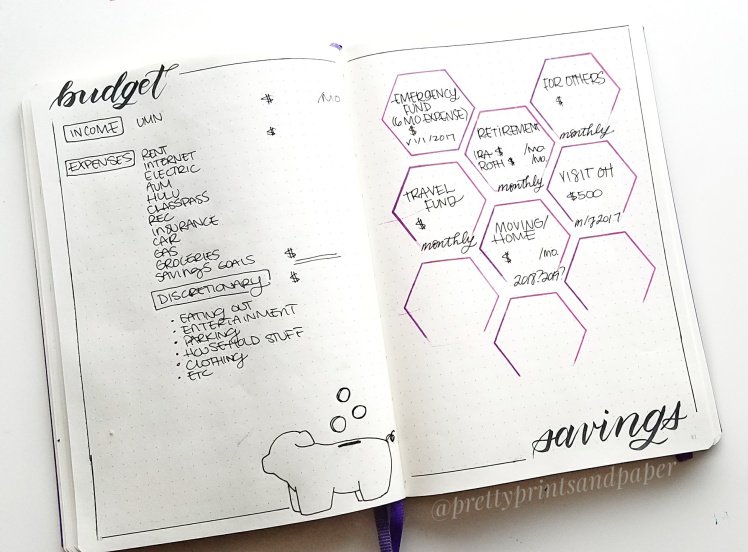 budget
$ /MO
INCOME UMN
$
EXPENSES RENT
INTERNET
ELECTRIC
AVM
HULU
CLASSPASS
REC
INSURANCE
CAR
GAS
GROCERIES
SAVINGS GOALS $
DISCRETIONARY $
• EATING OUT
• ENTERTAINMENT
• PARKING
• HOUSEHOLD STUFF
• CLOTHING
• ETC
EMERGENCY
FUND
(6 MO. EXPENSE)
$
√1/1/2017
RETIREMENT
IRA $ /mo.
ROTH $ /mo.
monthly
FOR OTHERS
$
monthly
TRAVEL
FUND
$
monthly
VISIT OH
$500
2017
MOVING/
HOME
$ /mo.
2018? 2019?
savings
@prettyprintsandpaper